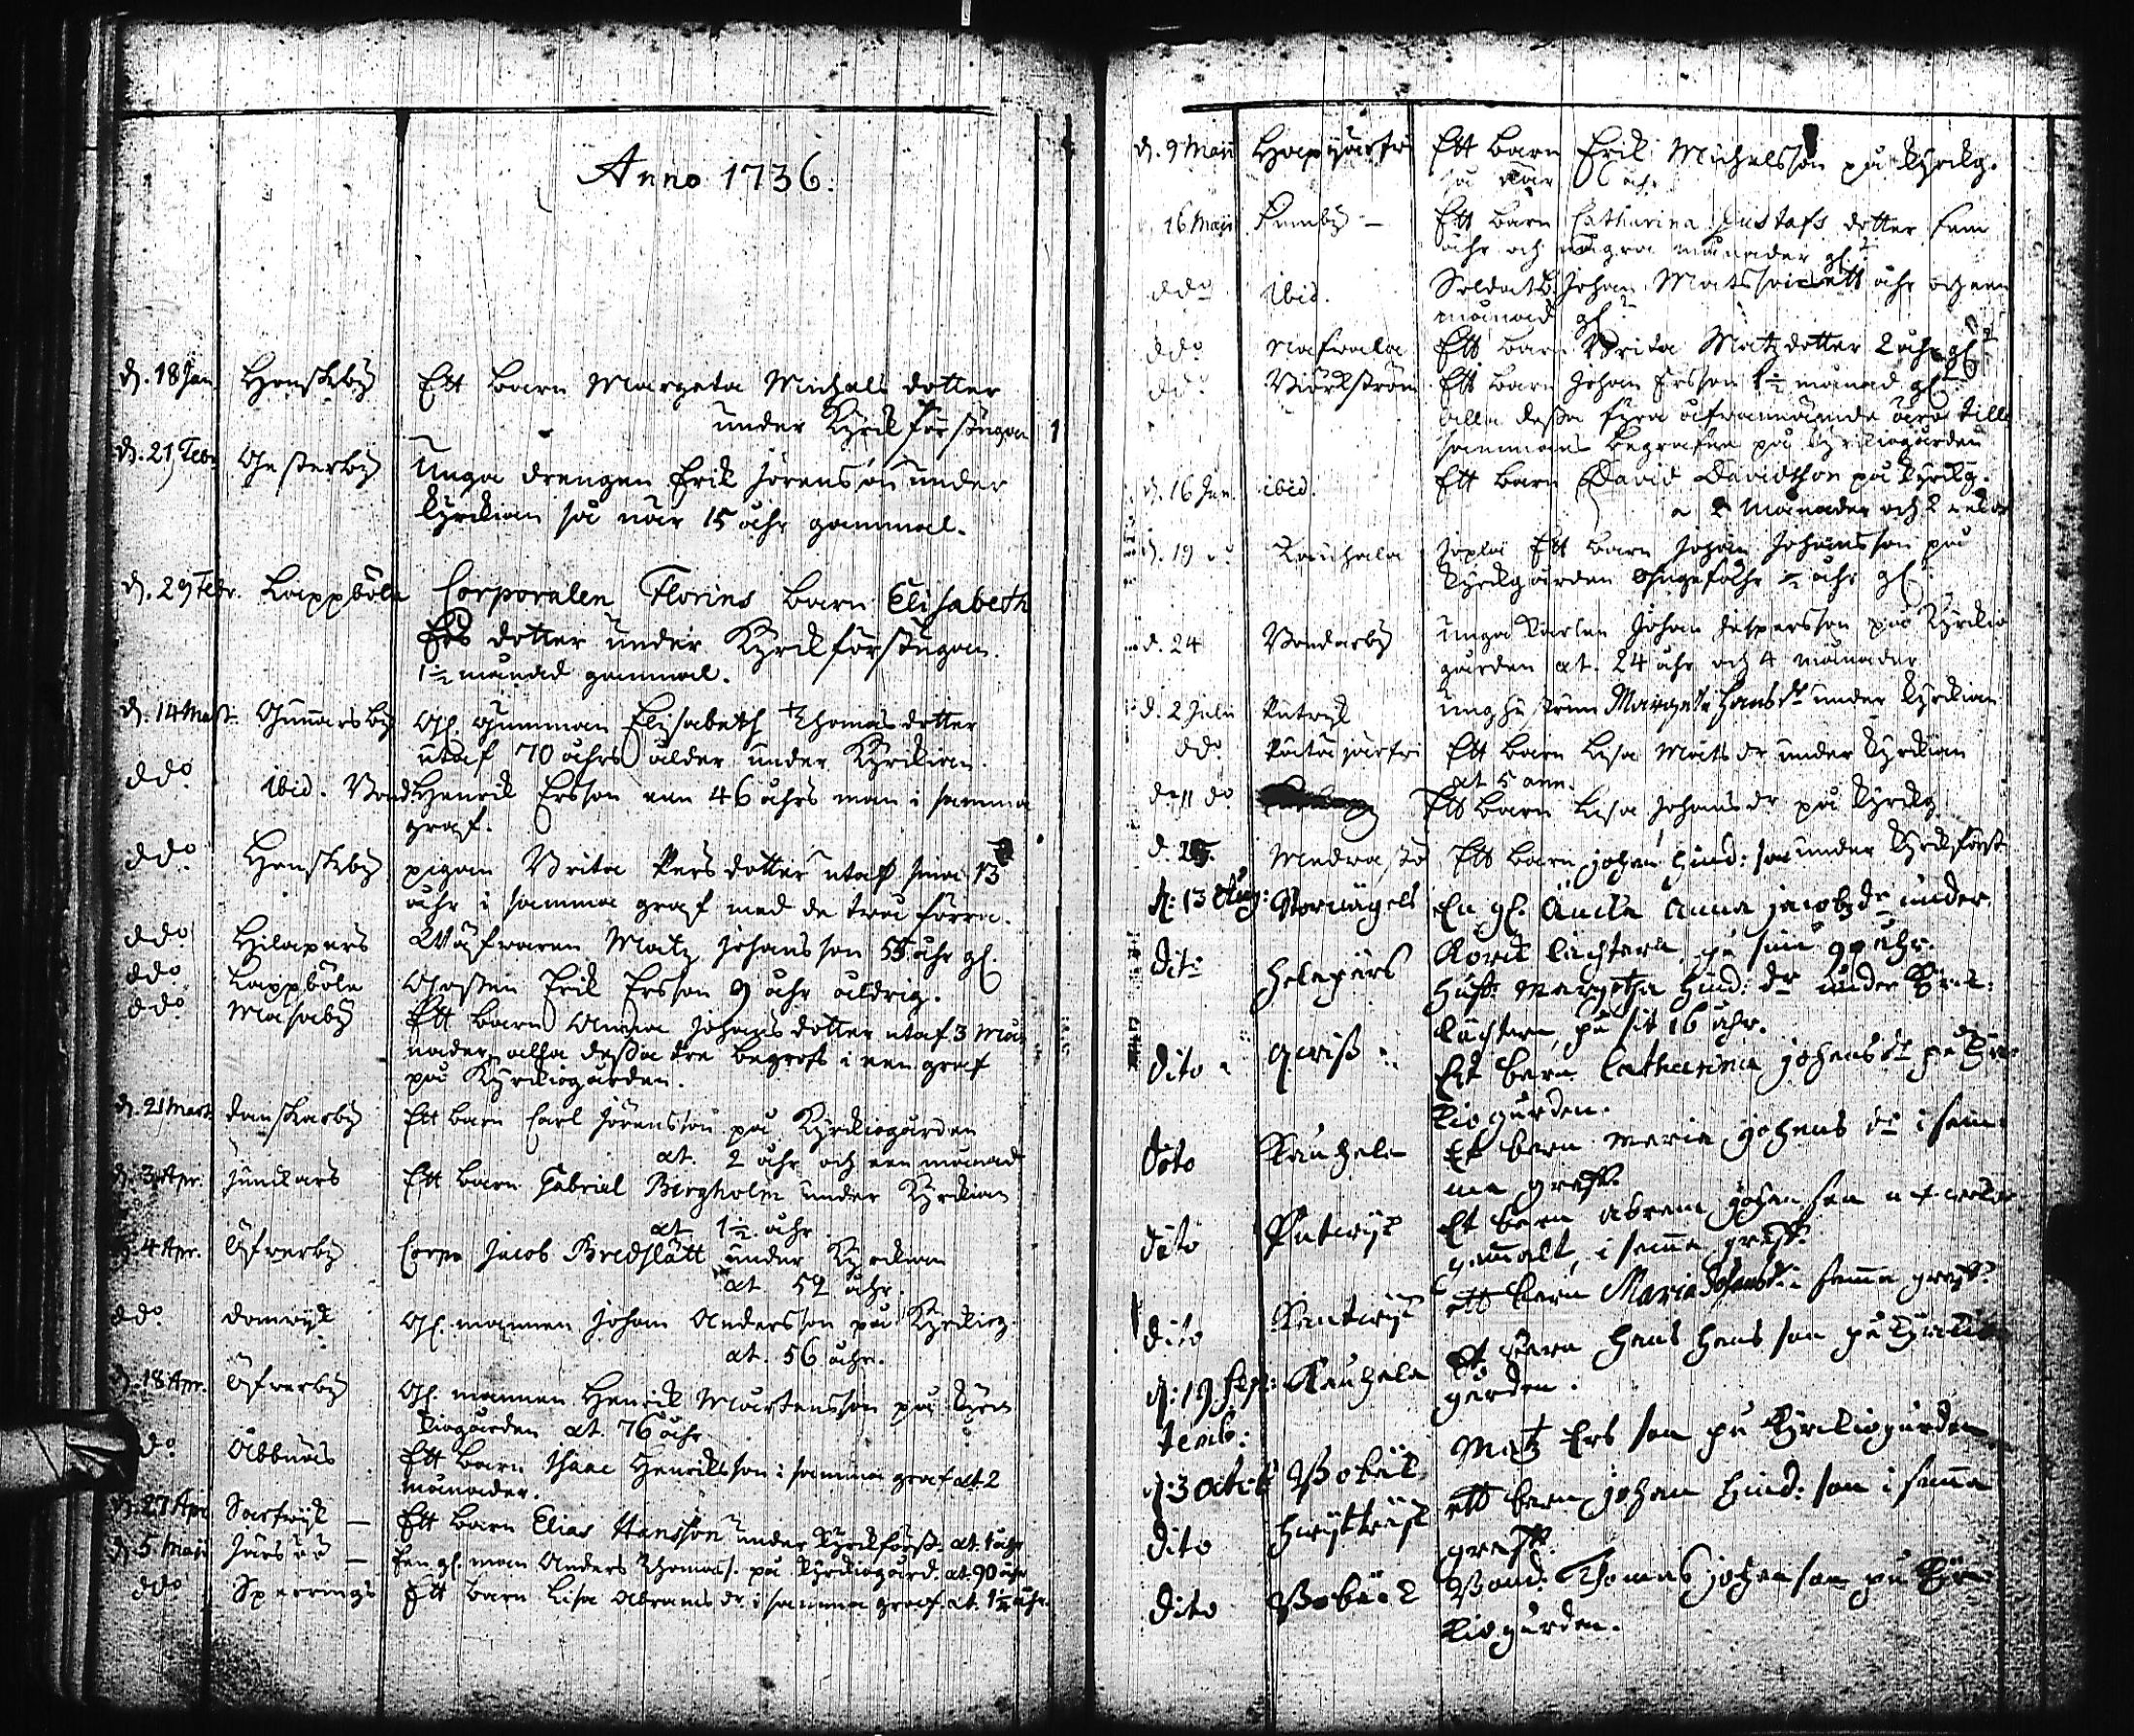 Anno 1736.
d. 18 Jan Honskby Ett barn Margeta Michels dotter
under Kyrk förstugan 1
d. 21 Febr Gesterby Unga drengen Erik Jörensson under
kyrkian så när 15 åhr gammal.
d. 29 Febr. Lappböle Corporalen Florins barn Elisabeth
Ers dotter under Kyrkförstugan.
1½ månad gammal.
d. 14 Mart. Gunnarsby Gl. gumman Elisabeth Thomas dotter
utaf 70 åhrs ålder under Kyrkian.
ddo ibid. Bond. Henrik Ersson een 46 åhrs man i samma
graf.
ddo Honskby pigan Brita Pers dotter utaf sina 13
åhr i samma graf med de twå förra.
ddo Hilapers Wäfwaren Matz Johansson 55 åhr gl.
ddo Lappböle Gossen Erik Ersson 9 åhr åldrig.
ddo Masaby Ett barn Anna Johans dotter utaf 3 må
nader alla dessa tre begrofs i een graf
på Kyrkiogården.
d. 21 Mart. Danskarby Ett barn Carl Jörensson på Kyrkiogården
æt. 2 åhr och een månad
d. 3 Apr. Junkars Ett barn Gabriel Bergholm under Kyrkian
æt. 1½ åhr
d. 4 Apr. Öfwerby Corpo Jacob Bredslätt under Kyrkian
æt. 52 åhr.
ddo Domwijk Gl. mannen Johan Andersson på Kyrkiog.
æt. 56 åhr.
d. 18 Apr. Öfwerby Gl. mannen Henrik Mårtensson på Kyrk
kiogården æt. 76 åhr
do Åbbnäs Ett barn Isaac Henriksson i samma graf æt 2
månader.
d. 27 Apr Sarfwijk — Ett barn Elias Hansson under kyrkförst. æt. 1 åhr
d. 5 Maji Järsöö — Een gl. man Anders Thomass. på kyrkiogård. æt. 90 åhr
ddo Sperrings Ett barn Lisa Abrams dr i samma graf. æt. 1½ åhr.
d. 9 Maji Ett barn Erik Michelsson på kyrkg.
så när 6 åhr
16 Maji Finnby — Ett barn Catharina Gustafs dotter fem
åhr och några månader gl.
ddo ibid. Soldat b. Johan Matsson ett åhr och een
månad gl.
ddo Nafwala Ett barn Brita Matz dotter 2 åhr gl.
ddo Biörkström Ett barn Johan Ersson 1½ månad gl.
alla dessa fyra ofwannämde äro till
sammans begrafne på kyrkiogården
d. 16 Jun. ibid. Ett barn David Davidthson på kyrkg.
2 Månader och 2 wekor
d. 19 do Kauhala Ett barn Johan Johansson på
kyrkgården ohngefähr ½ åhr gl.
d. 24 Bondarby unga Karlen Johan Jespersson på Kyrkio
gården æt. 24 åhr och 4 månader
d. 2 Julii Patwik ung hustrun Margeta Hans dr under kyrkian
ddo Ett barn Lisa Mats dr under kyrkian
æt 5 ann.
d. 11 do Ett barn Lisa Johans dr på kyrkg
d. 25. Medwastö Ett barn Johan Hind: son under kyrkförst
d: 13 Aug: En gl. Änkia Anna Jacobs dr under
Korck lächtern, på sina 90 åhr.
Dito Helapärs Hust. Margetha Hind: dr under Kyrk:
lächtern, på sit 16 åhr.
Dito Qwiss Ett barn Catharina Johans dr på kyr
kiogården.
Dito Kauhala Et barn Maria Johans dr i sam
ma graff.
Dito Et barn Abram Johan son
gamalt, i samma graff.
Dito Kantwijk ett barn Maria Johans dr i samma graff.
d: 19 Sep: Kauhala Et barn Hans Hans son på kyrkio
temb: gården.
d: 3 octob Bobäck Matz Ers son på kyrkiogården
Dito Hwijtträsk ett barn Johan Hind: son i samma
graff.
Dito Bobäck Bond. Thomas Johan son på kyr
kiogården.